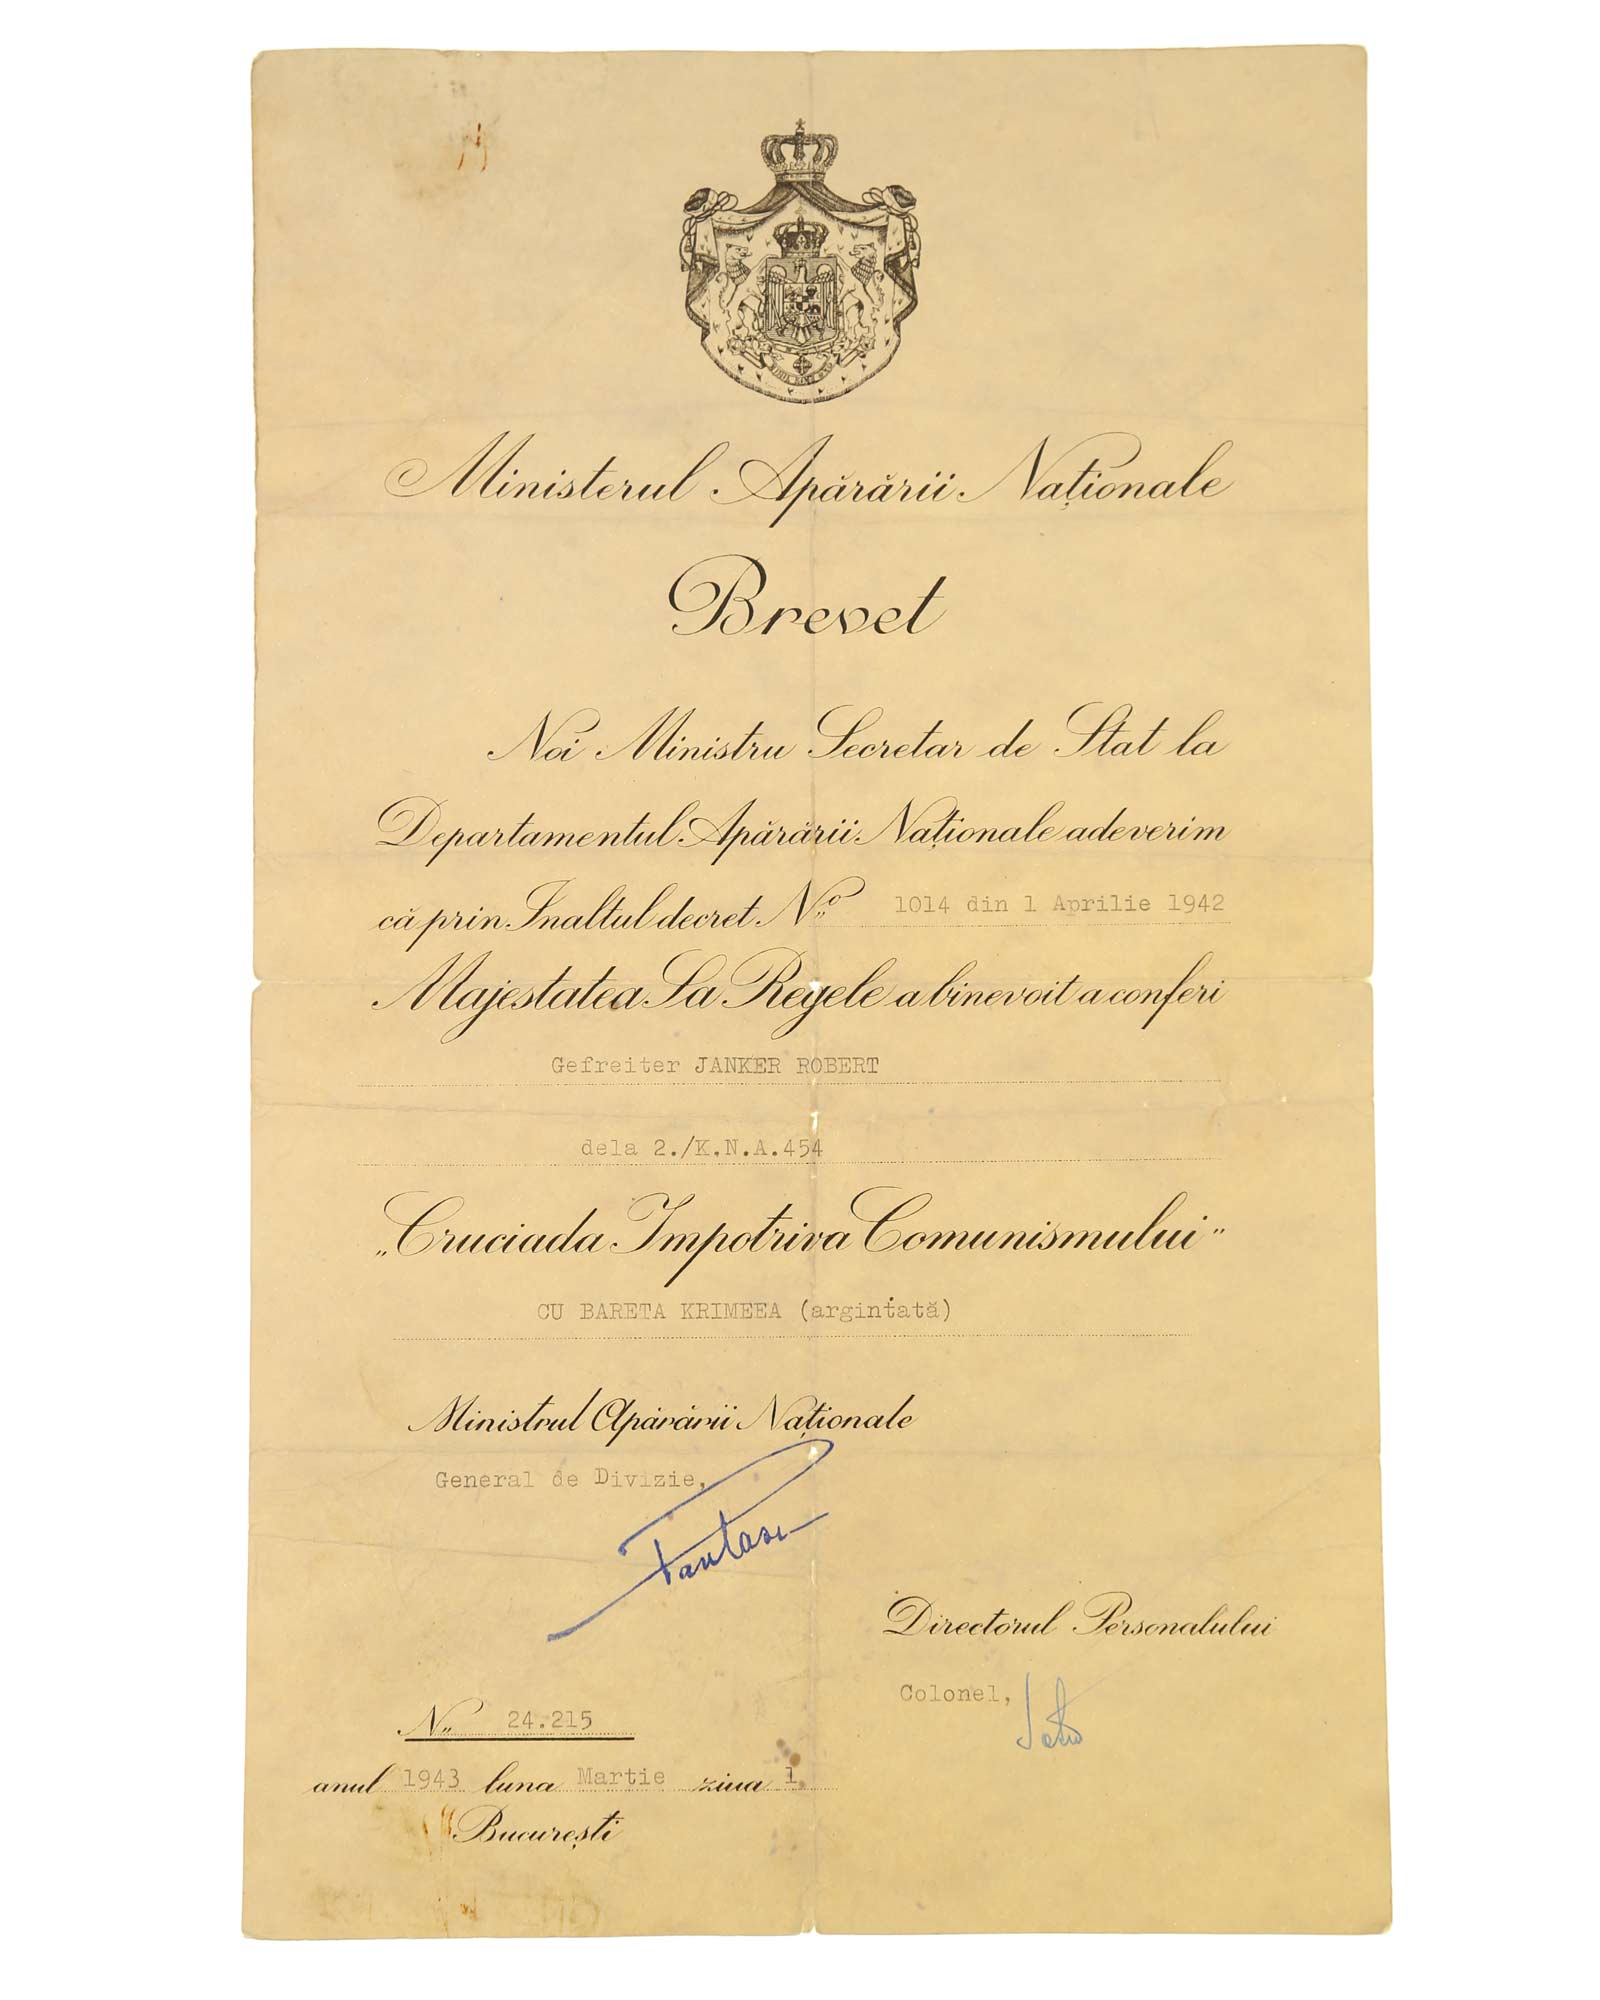 Ministerul Apărării Naționale
Brevet
Noi Ministru Secretar de Stat la
Departamentul Apărării Naționale adeverim
că prin Inaltul decret No 1014 din 1 Aprilie 1942
Majestatea Sa Regele a binevoit a conferi
Gefreiter JANKER ROBERT
dela 2./K.N.A.454
„Cruciada Impotriva Comunismului"
CU BARETA KRIMEEA (argintată)
Ministrul Apărării Naționale
General de Divizie,
Directorul Personalului
Colonel,
No 24.215
anul 1943 luna Martie ziua 1
București